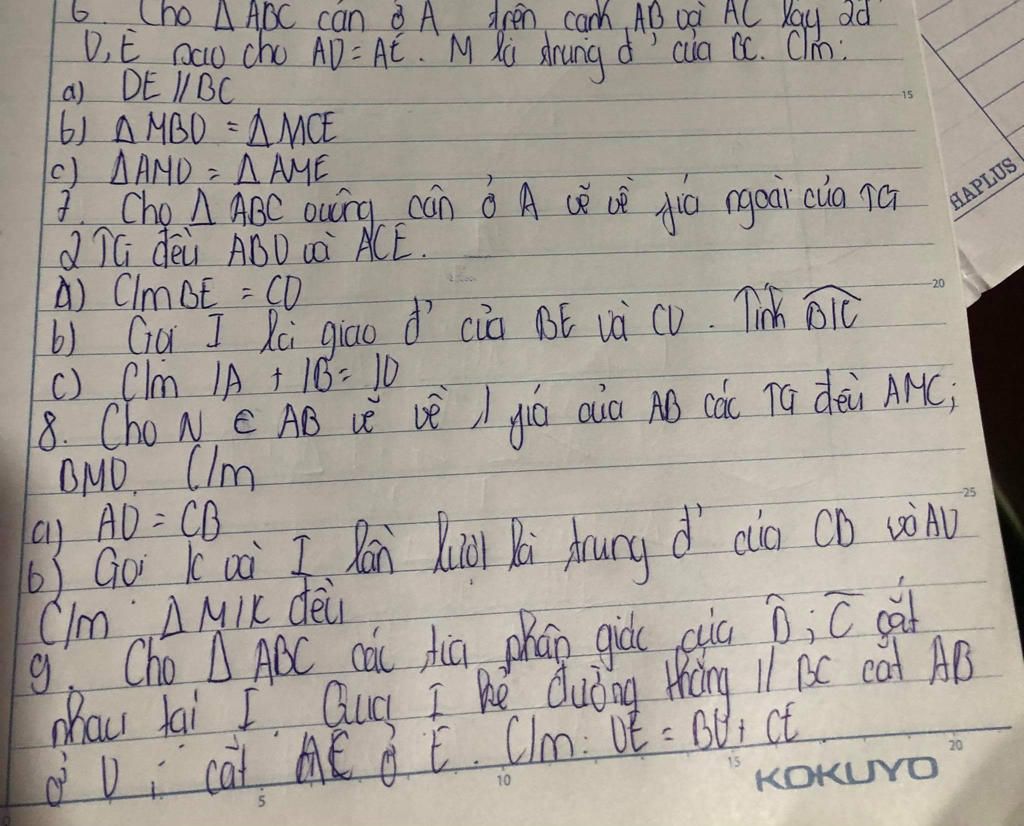 6. Cho Δ ABC cân ở A trên cạnh AB và AC lấy 2đ
D, E sao cho AD = AE. M là trung đ' của BC. C/m:
a) DE // BC
15
b) Δ MBD = Δ MCE
c) Δ AMD = Δ AME
HAPLUS
7. Cho Δ ABC vuông cân ở A vẽ về phía ngoài của TG
2 TG đều ABD và ACE.
A) C/m BE = CD
20
b) Gọi I là giao đ' của BE và CD. Tính BIC
c) C/m IA + IB = ID
8. Cho N ∈ AB vẽ về 1 phía của AB các TG đều AMC;
BMD. C/m
25
a) AD = CB
b) Gọi K và I lần lượt là trung đ' của CB và AD
C/m Δ MIK đều
9. Cho Δ ABC các tia phân giác của B; C cắt
nhau tại I. Qua I kẻ đường thẳng // BC cắt AB
ở D; cắt AE ở E. C/m: DE = BD + CE
5 10 15 20
KOKUYO